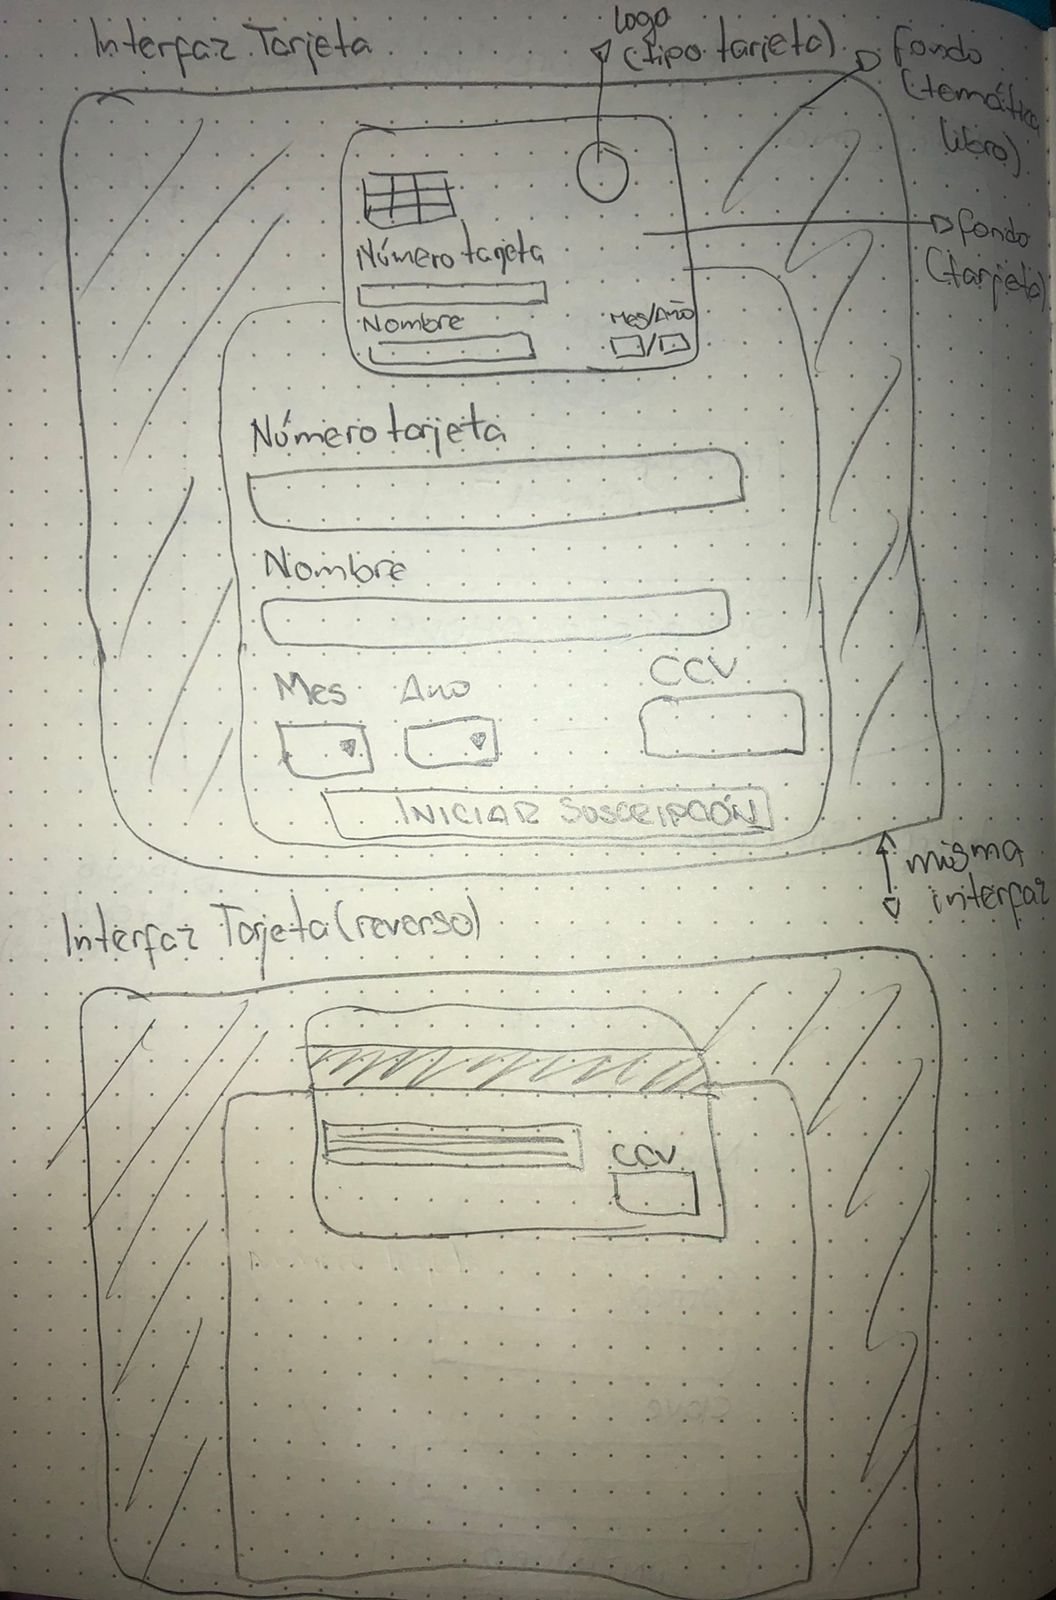 Interfaz Tarjeta
logo
(tipo tarjeta)
fondo
(temática
libro)
fondo
(tarjeta)
Número tarjeta
Nombre
Mes/Año
/
Número tarjeta
Nombre
Mes Año
CCV
INICIAR SUSCRIPCIÓN
misma
interfaz
Interfaz Tarjeta (reverso)
CCV